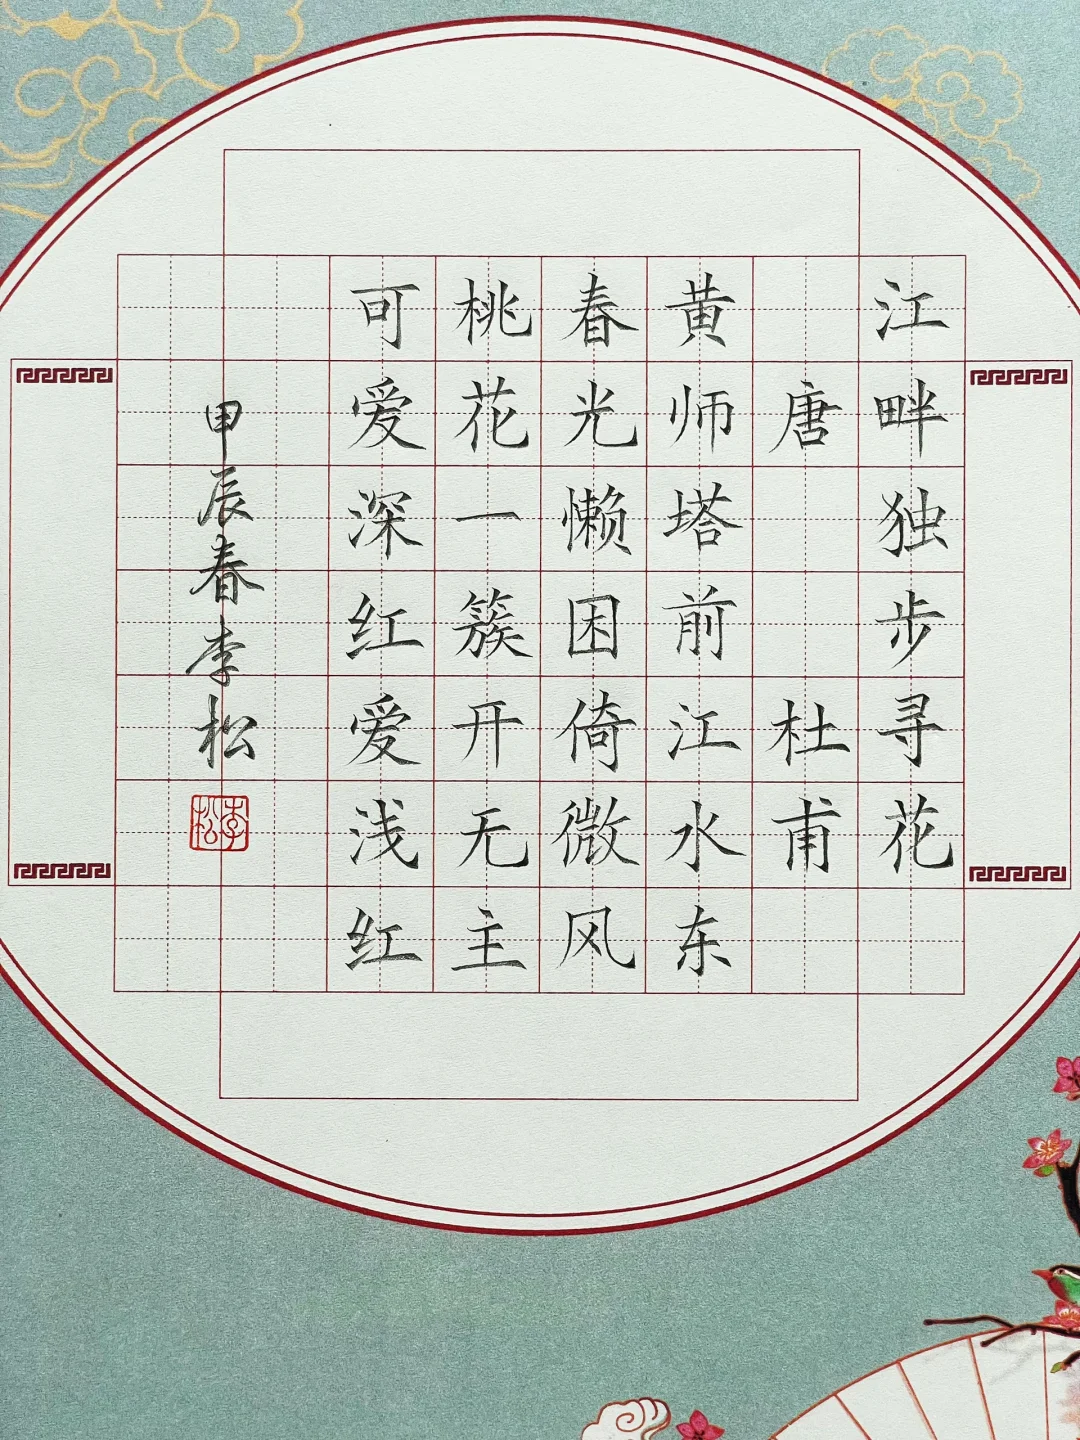 江畔独步寻花
唐 杜甫
黄师塔前江水东
春光懒困倚微风
桃花一簇开无主
可爱深红爱浅红
甲辰春李松
李松